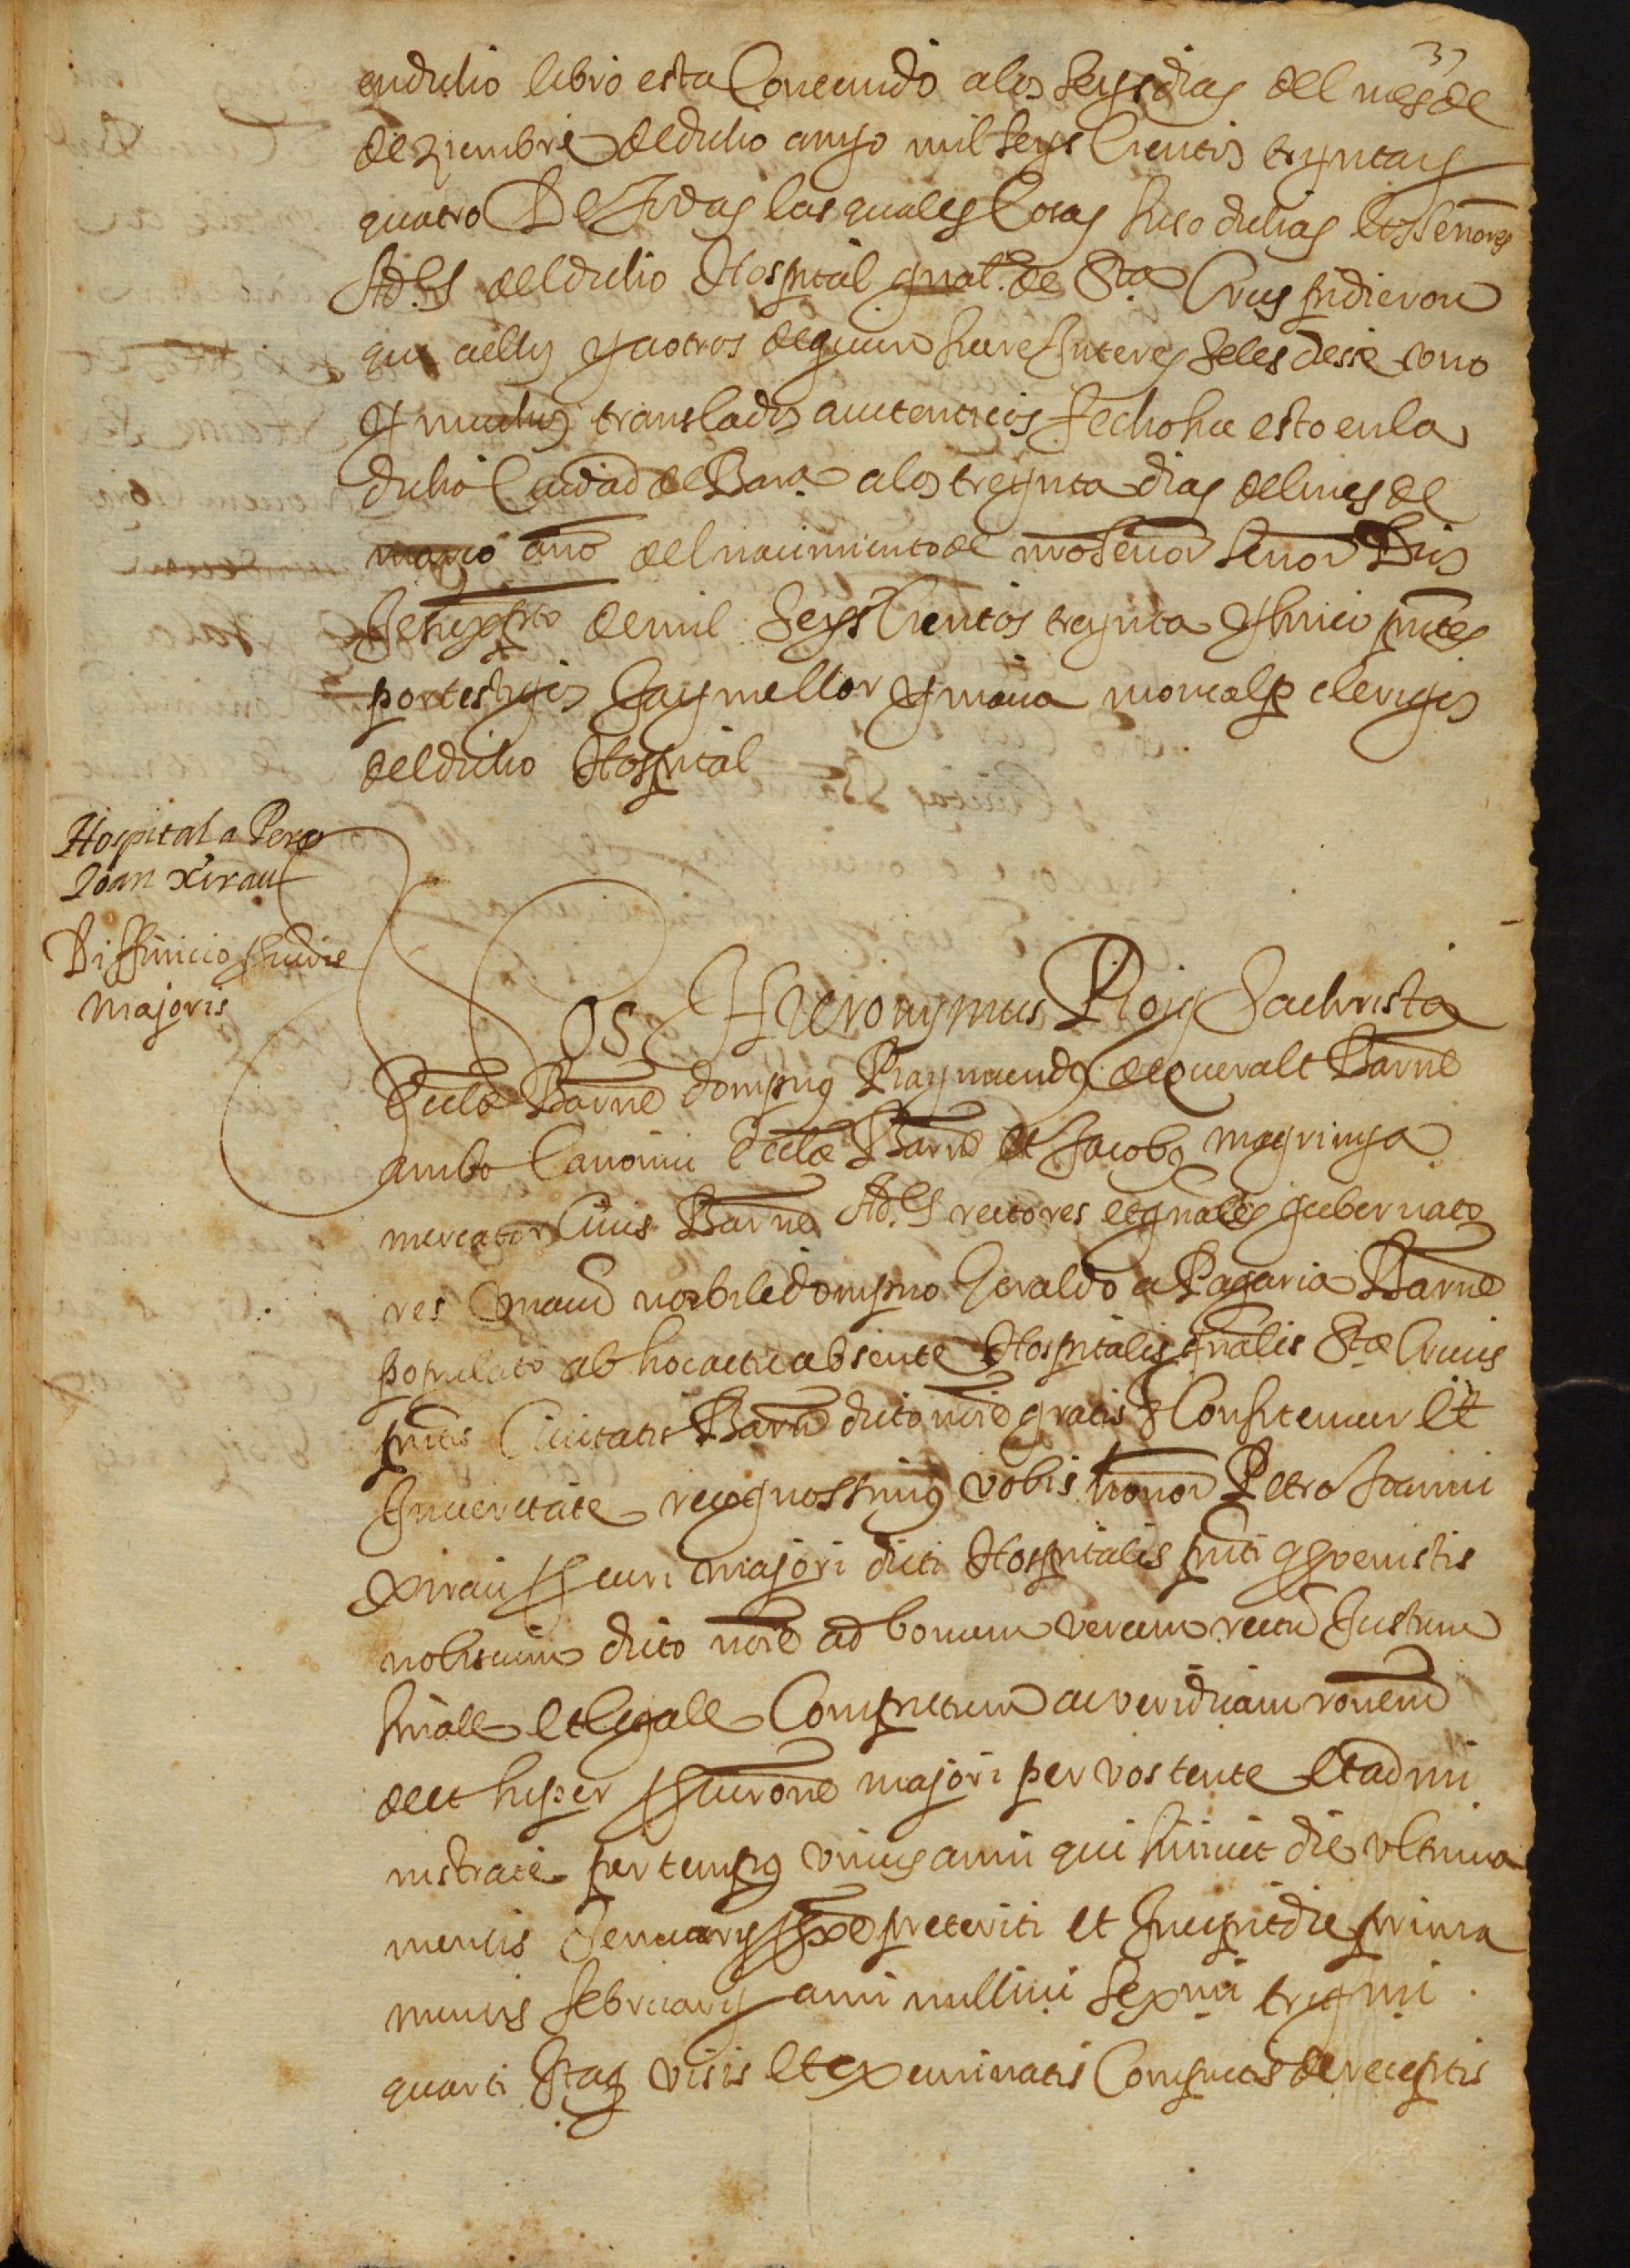 37
en dicho libro esta Contenido a los seys dias del mes de
deziembre de dicho anyo mil seys Cientos treynta y
quatro De Todas las quales Cosas suso dichas los señores
Ad.rs del dicho Hospital gnal. de Sta Crus pidieron
que a ellos y a otros de quien sea Interes se les diesse vno
y muchos translados autenticos fecho fue esto en la
dicha Ciudad de Bar.a a los treynta dias del mes de
março año del nacimiento de nro Señor Señor Dios
Jesuxpto de mil Seys Cientos treynta y sinco pntes
por testigos Jaymellor y maria moncalp clerigos
del dicho Hospital
Hospital a Pere
Joan Xirau
Diffinicio scrivie
majoris
Nos Hieronymus Roig Sachrista
Ecclæ Barne dompnus Raymundus de queralt Barne
ambo Canonici Ecclæ Barne et Jacobus magrinya
mercator Civis Barne Ad.rs rectores et gnales gubernato
res vnacum nobile dompno Geraldo a Paguria Barne
populato ab hoc actu absente Hospitalis gnalis Stæ Crucis
pntis Civitatis Barne dicto noie gratis & Confitemur Et
In veritate recognossimus vobis honor Petro Joanni
Xirau scriuri majori dicti Hospitalis pnti q venistis
nobiscum dicto noie ad bonum verum rectu Justum
finale et legale Computum ac veridicam ronem
de et super scriuzone majori per vos tente Et admi
nistrate per tempus vnius anni qui finivit die vltima
mensis Januarij pxe preteriti et Incepit die prima
mensis februarij anni millmi sexmi trigmi
quarti Itaq visis et exeminatis Computis de receptis